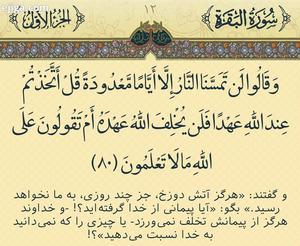 epqa.com
الجزء الأول
١٢
سُورَةُ البَقَرَةِ
وَقَالُوا لَن تَمَسَّنَا النَّارُ إِلَّا أَيَّامًا مَّعْدُودَةً قُلْ أَتَّخَذْتُمْ
عِندَ اللَّهِ عَهْدًا فَلَن يُخْلِفَ اللَّهُ عَهْدَهُ أَمْ تَقُولُونَ عَلَى
اللَّهِ مَا لَا تَعْلَمُونَ (٨٠)
و گفتند: «هرگز آتش دوزخ، جز چند روزی، به ما نخواهد
رسید.» بگو: «آیا پیمانی از خدا گرفته‌اید؟! -و خداوند
هرگز از پیمانش تخلف نمی‌ورزد- یا چیزی را که نمی‌دانید
به خدا نسبت می‌دهید»؟!